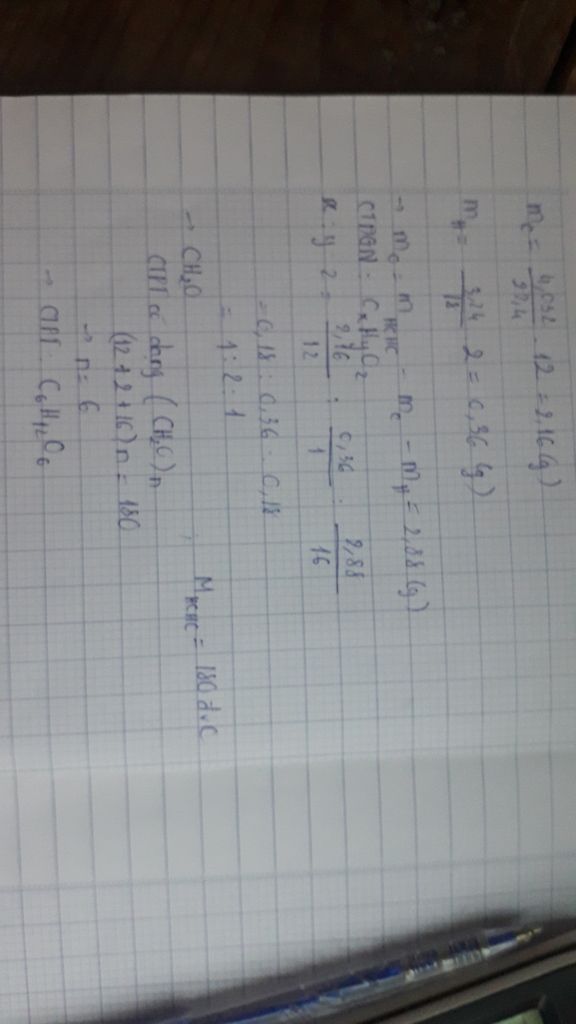 m_C = 4,032/22,4 . 12 = 2,16 (g)
m_H = 3,24/18 . 2 = 0,36 (g)
→ m_O = m_HCHC - m_C - m_H = 2,88 (g)
CTĐGN : C_xH_yO_z
x : y : z = 2,16/12 : 0,36/1 : 2,88/16
= 0,18 : 0,36 : 0,18
= 1 : 2 : 1
→ CH₂O
CTPT có dạng (CH₂O)n ; M_HCHC = 180 đvC
(12 + 2 + 16) n = 180
→ n = 6
→ CTPT : C₆H₁₂O₆